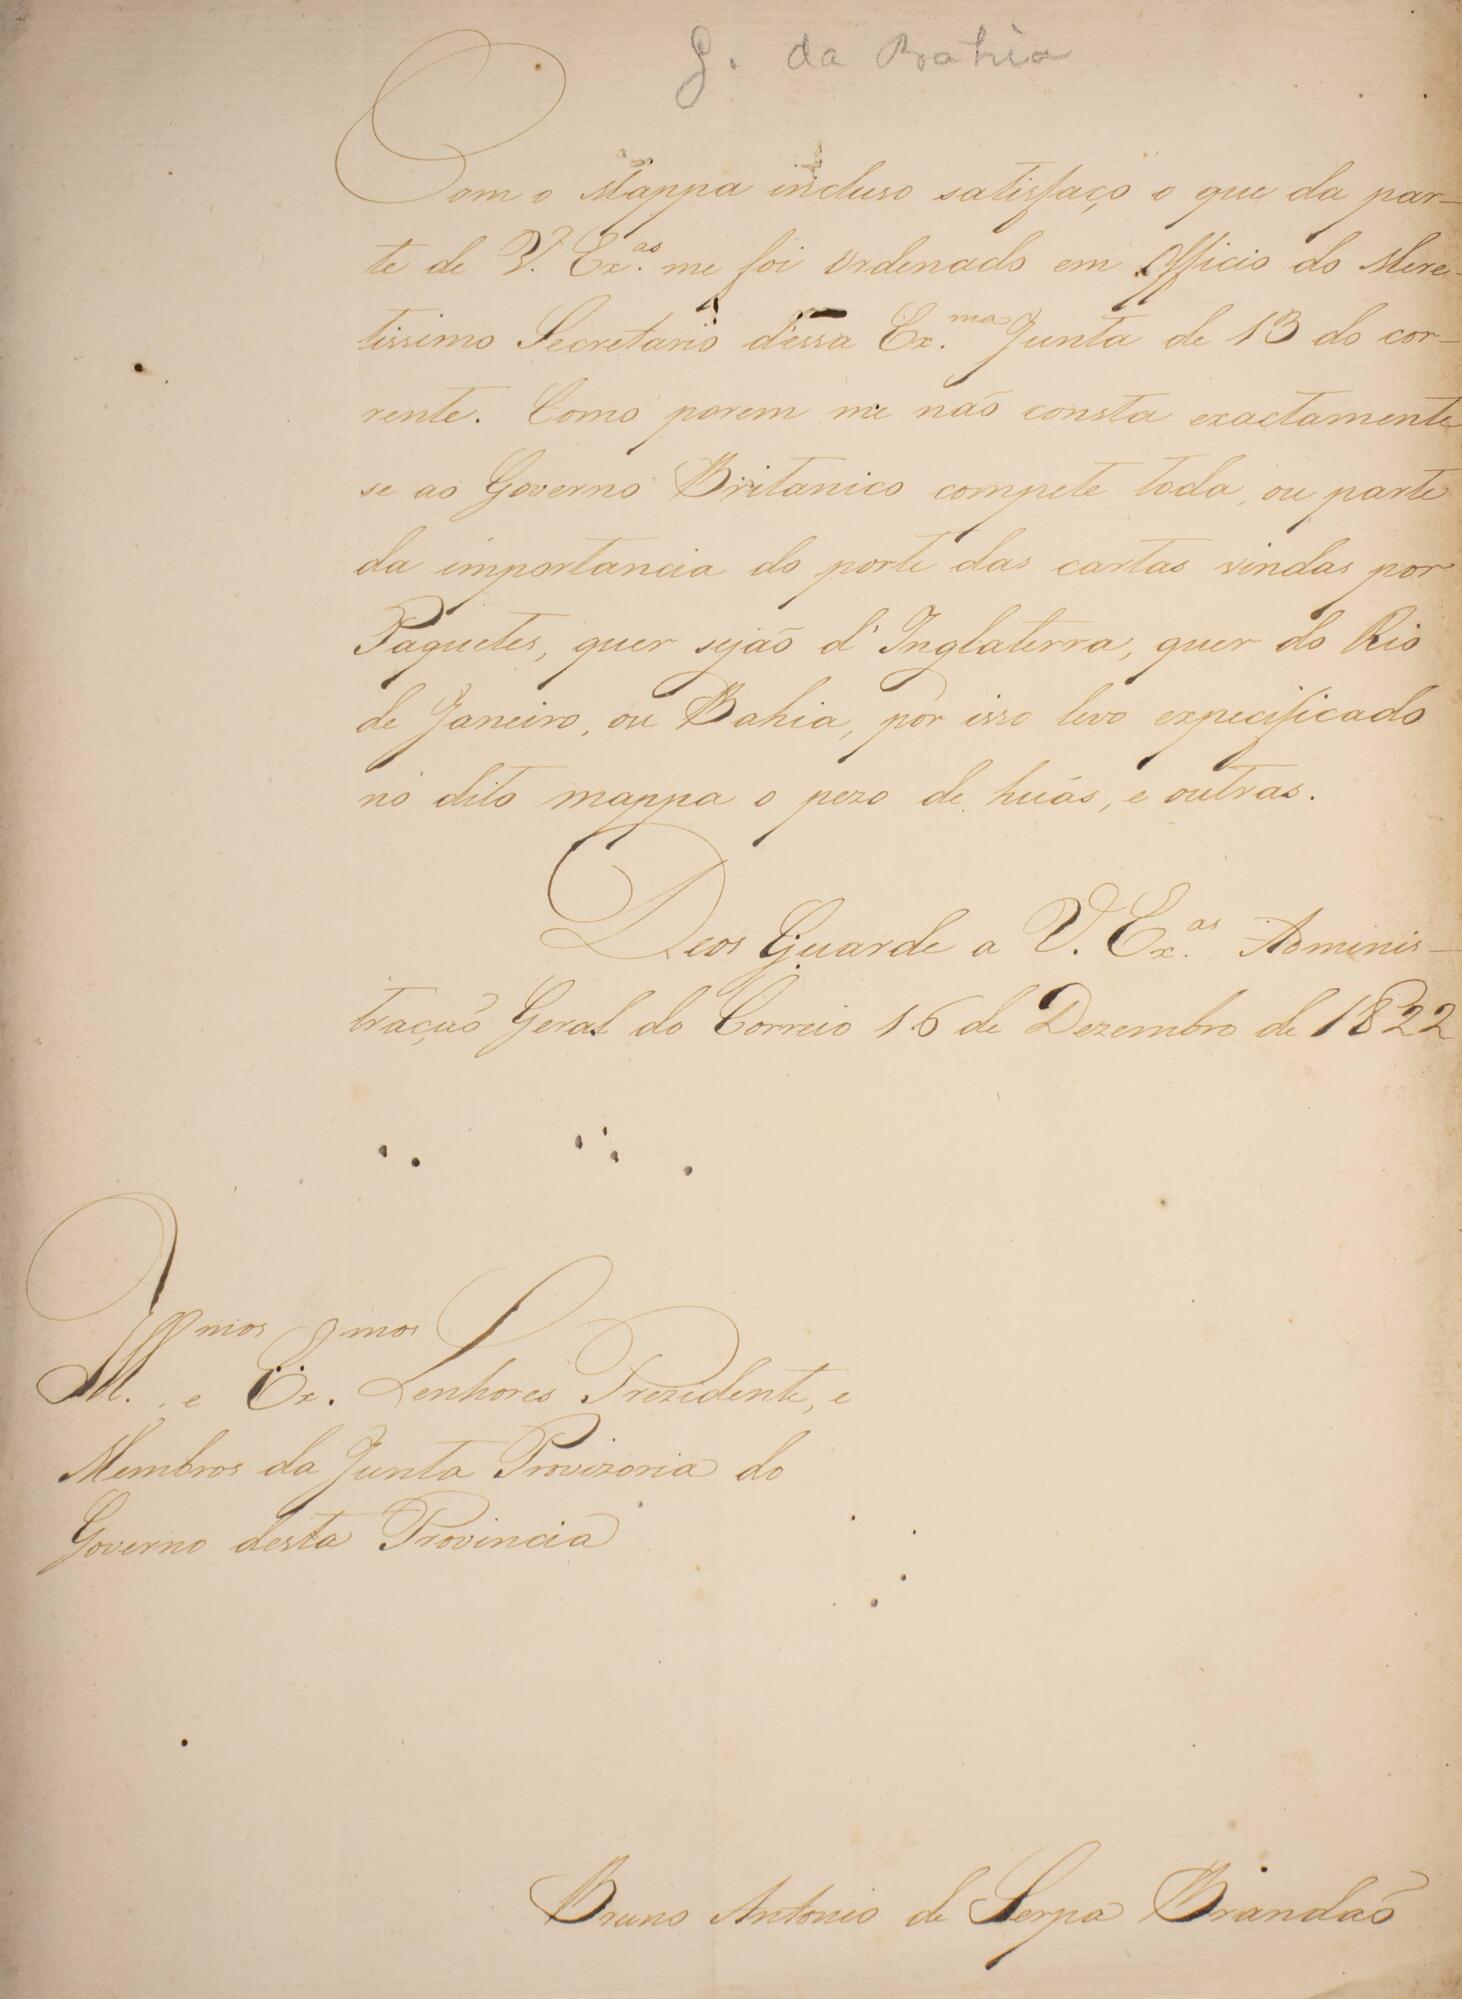 G. da Bahia
Com o Mappa incluso satisfaço o que da par-
te de V. Ex.as me foi ordenado em Officio do Mere-
tissimo Secretario dessa Ex.ma Junta de 13 do cor-
rente. Como porem me não consta exactamente
se ao Governo Britanico compete toda, ou parte
da importancia do porte das cartas vindas por
Paquetes, quer sejão d'Inglaterra, quer do Rio
de Janeiro, ou Bahia, por isso levo expecificado
no dito mappa o pezo de huãs, e outras.
Deos Guarde a V. Ex.as Adminis-
tração Geral do Correio 16 de Dezembro de 1822
Ill.mos e Ex.mos Senhores Prezidente, e
Membros da Junta Provizoria do
Governo desta Provincia
Bruno Antonio de Serpa Brandão